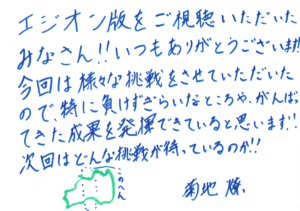 エジオン版をご視聴いただいた
みなさん!!いつもありがとうございます!!
今回は様々な挑戦をさせていただいた
ので、特に負けずぎらいなところや、がんばっ
てきた成果を発揮できていると思います!!
次回はどんな挑戦が待っているのか!!
このへん
菊地